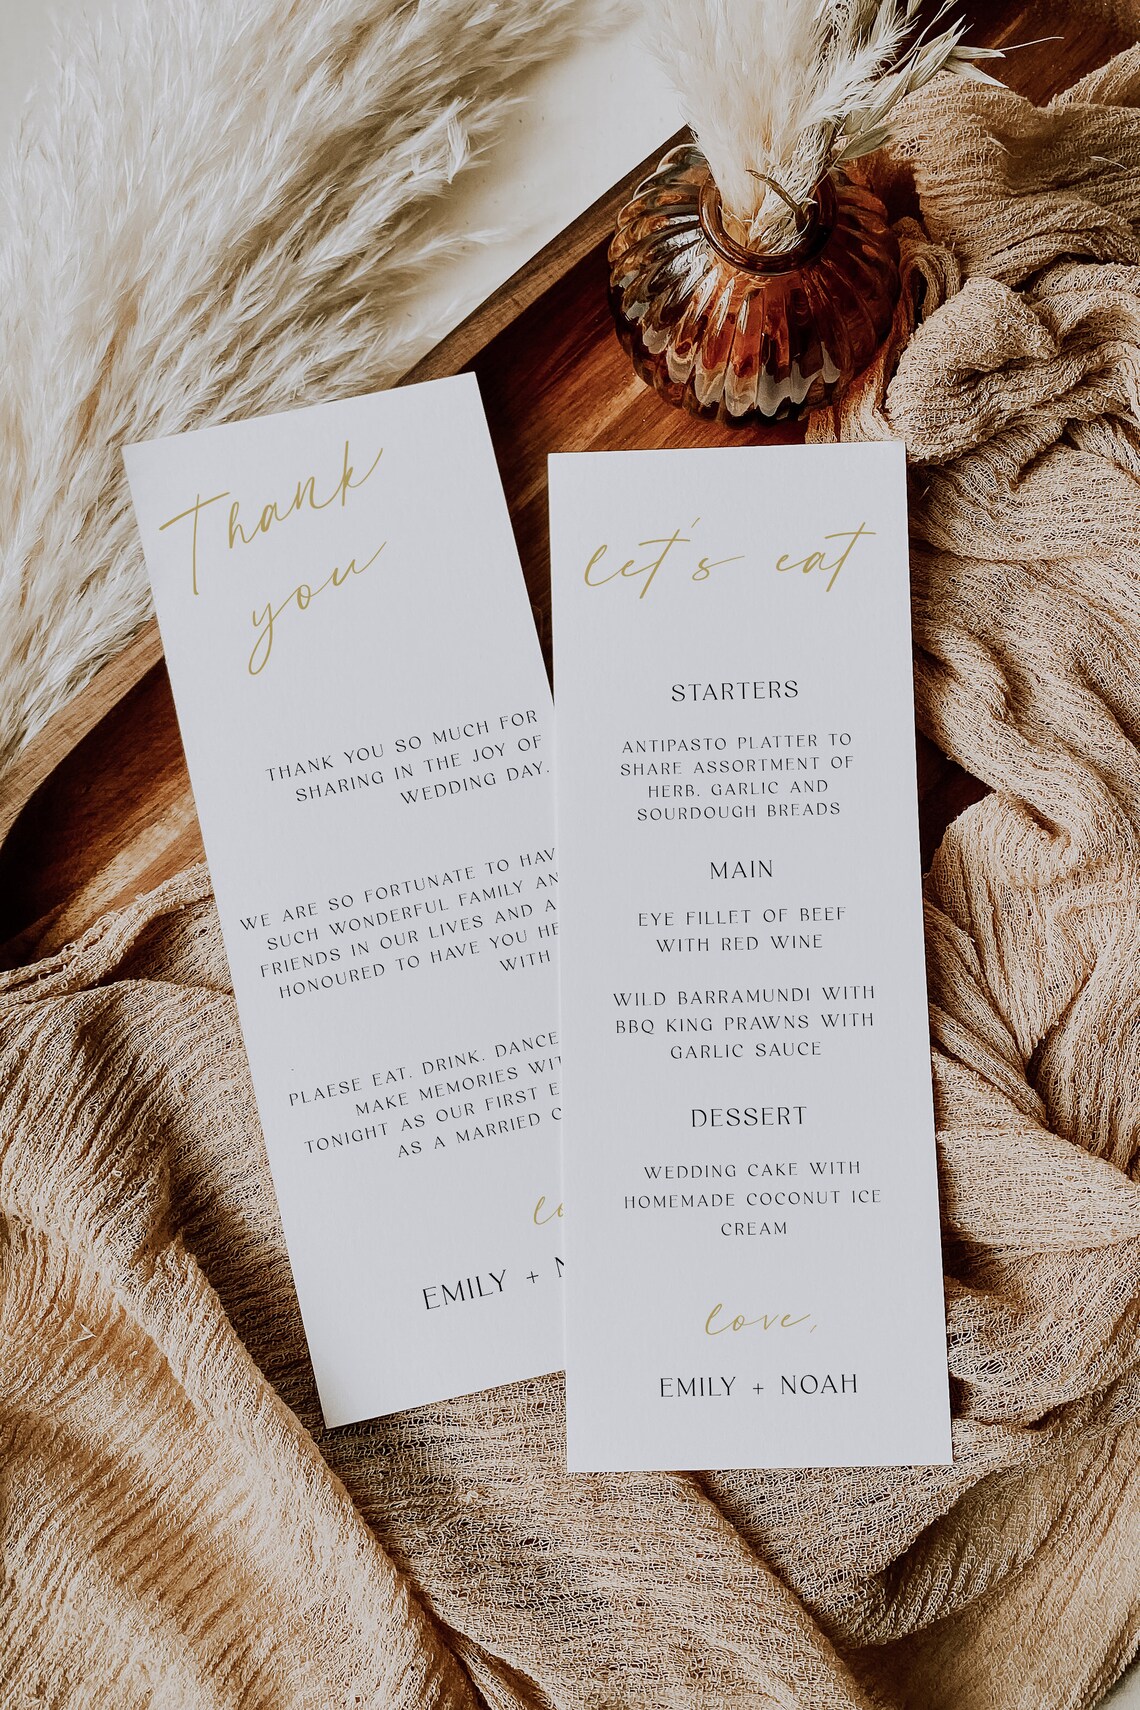 Thank
you
THANK YOU SO MUCH FOR
SHARING IN THE JOY OF
WEDDING DAY.
WE ARE SO FORTUNATE TO HAV
SUCH WONDERFUL FAMILY AN
FRIENDS IN OUR LIVES AND A
HONOURED TO HAVE YOU HE
WITH
PLAESE EAT. DRINK. DANCE
MAKE MEMORIES WIT
TONIGHT AS OUR FIRST E
AS A MARRIED C
EMILY +
let's eat
STARTERS
ANTIPASTO PLATTER TO
SHARE ASSORTMENT OF
HERB, GARLIC AND
SOURDOUGH BREADS
MAIN
EYE FILLET OF BEEF
WITH RED WINE
WILD BARRAMUNDI WITH
BBQ KING PRAWNS WITH
GARLIC SAUCE
DESSERT
WEDDING CAKE WITH
HOMEMADE COCONUT ICE
CREAM
love,
EMILY + NOAH